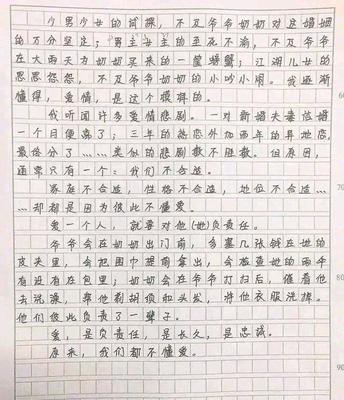 少男少女的试探，不及爷爷奶奶对这婚姻
的万分坚定；男主女主的至死不渝，不及爷爷
在大雨天为奶奶买来的一篮螃蟹；江湖儿女的
恩恩怨怨，不及爷爷奶奶的小吵小闹。我逐渐
懂得，爱情，是这个模样的。
我听闻许多爱情悲剧。一对新婚夫妻结婚
一个月便离了；三年的热恋外加两年的异地恋，
最终分了……类似的悲剧数不胜数。但原因，
通常只有一个：我们不合适。
家庭不合适，性格不合适，地位不合适…
…却都是因为彼此不懂爱。
爱一个人，就要对他(她)负责任。
爷爷会在奶奶出门前，多塞几张钱在她的
皮夹里，会把围巾提前拿出，会检查她的雨伞
有没有在包里；奶奶会在爷爷打扫后，催着他
去洗澡，帮他剃胡须和头发，将他衣服洗掉。
他们彼此负责了一辈子。
爱，是负责任，是长久，是忠诚。
原来，我们都不懂爱。
60
70
80
90